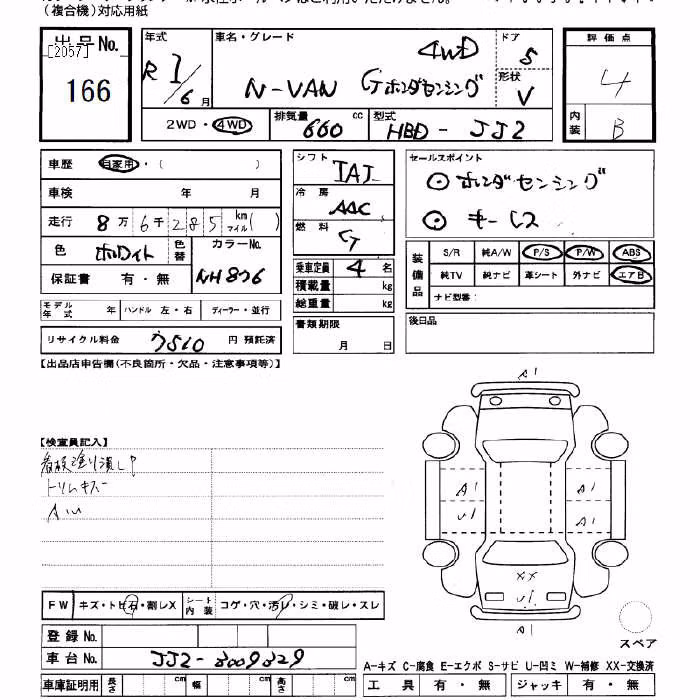 (複合機)対応用紙
出品No.
[2057]
166
年式
R 1/6 月
車名・グレード
N-VAN Gホンダセンシング 4WD
ドア
5
形状
V
評価点
4
内装
B
2WD・4WD
排気量 660 cc
型式 HBD-JJ2
車歴 自家用・( )
車検 年 月
走行 8万6千285 km マイル( )
色 ホワイト 色替
カラーNo. NH876
保証書 有・無
モデル年式 年 ハンドル 左・右 ディーラー・並行
リサイクル料金 7510 円 預託済
シフト
IAT
冷房
AAC
燃料
G
乗車定員 4 名
積載量 kg
総重量 kg
書類期限
月 日
セールスポイント
◎ ホンダセンシング
◎ キーレス
装備品
S/R 純A/W P/S P/W ABS
純TV 純ナビ 革シート 外ナビ エアB
ナビ型番:
後日品
【出品店申告欄(不良箇所・欠品・注意事項等)】
【検査員記入】
看板塗り潰し
トリムキズ
FW キズ・トビ石・割レX シート内装 コゲ・穴・汚レ・シミ・破レ・スレ
登録No.
車台No. JJ2-3009329
車庫証明用 長さ cm 幅 cm 高さ cm
A1
A1
U1
A1
A1
XX
U1
A1
スペア
A-キズ C-腐食 E-エクボ S-サビ U-凹ミ W-補修 XX-交換済
工具 有・無 ジャッキ 有・無